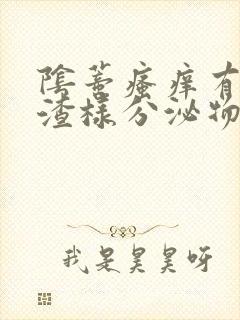 陰蒂瘙痒有
渣样分泌物
我是昊昊呀